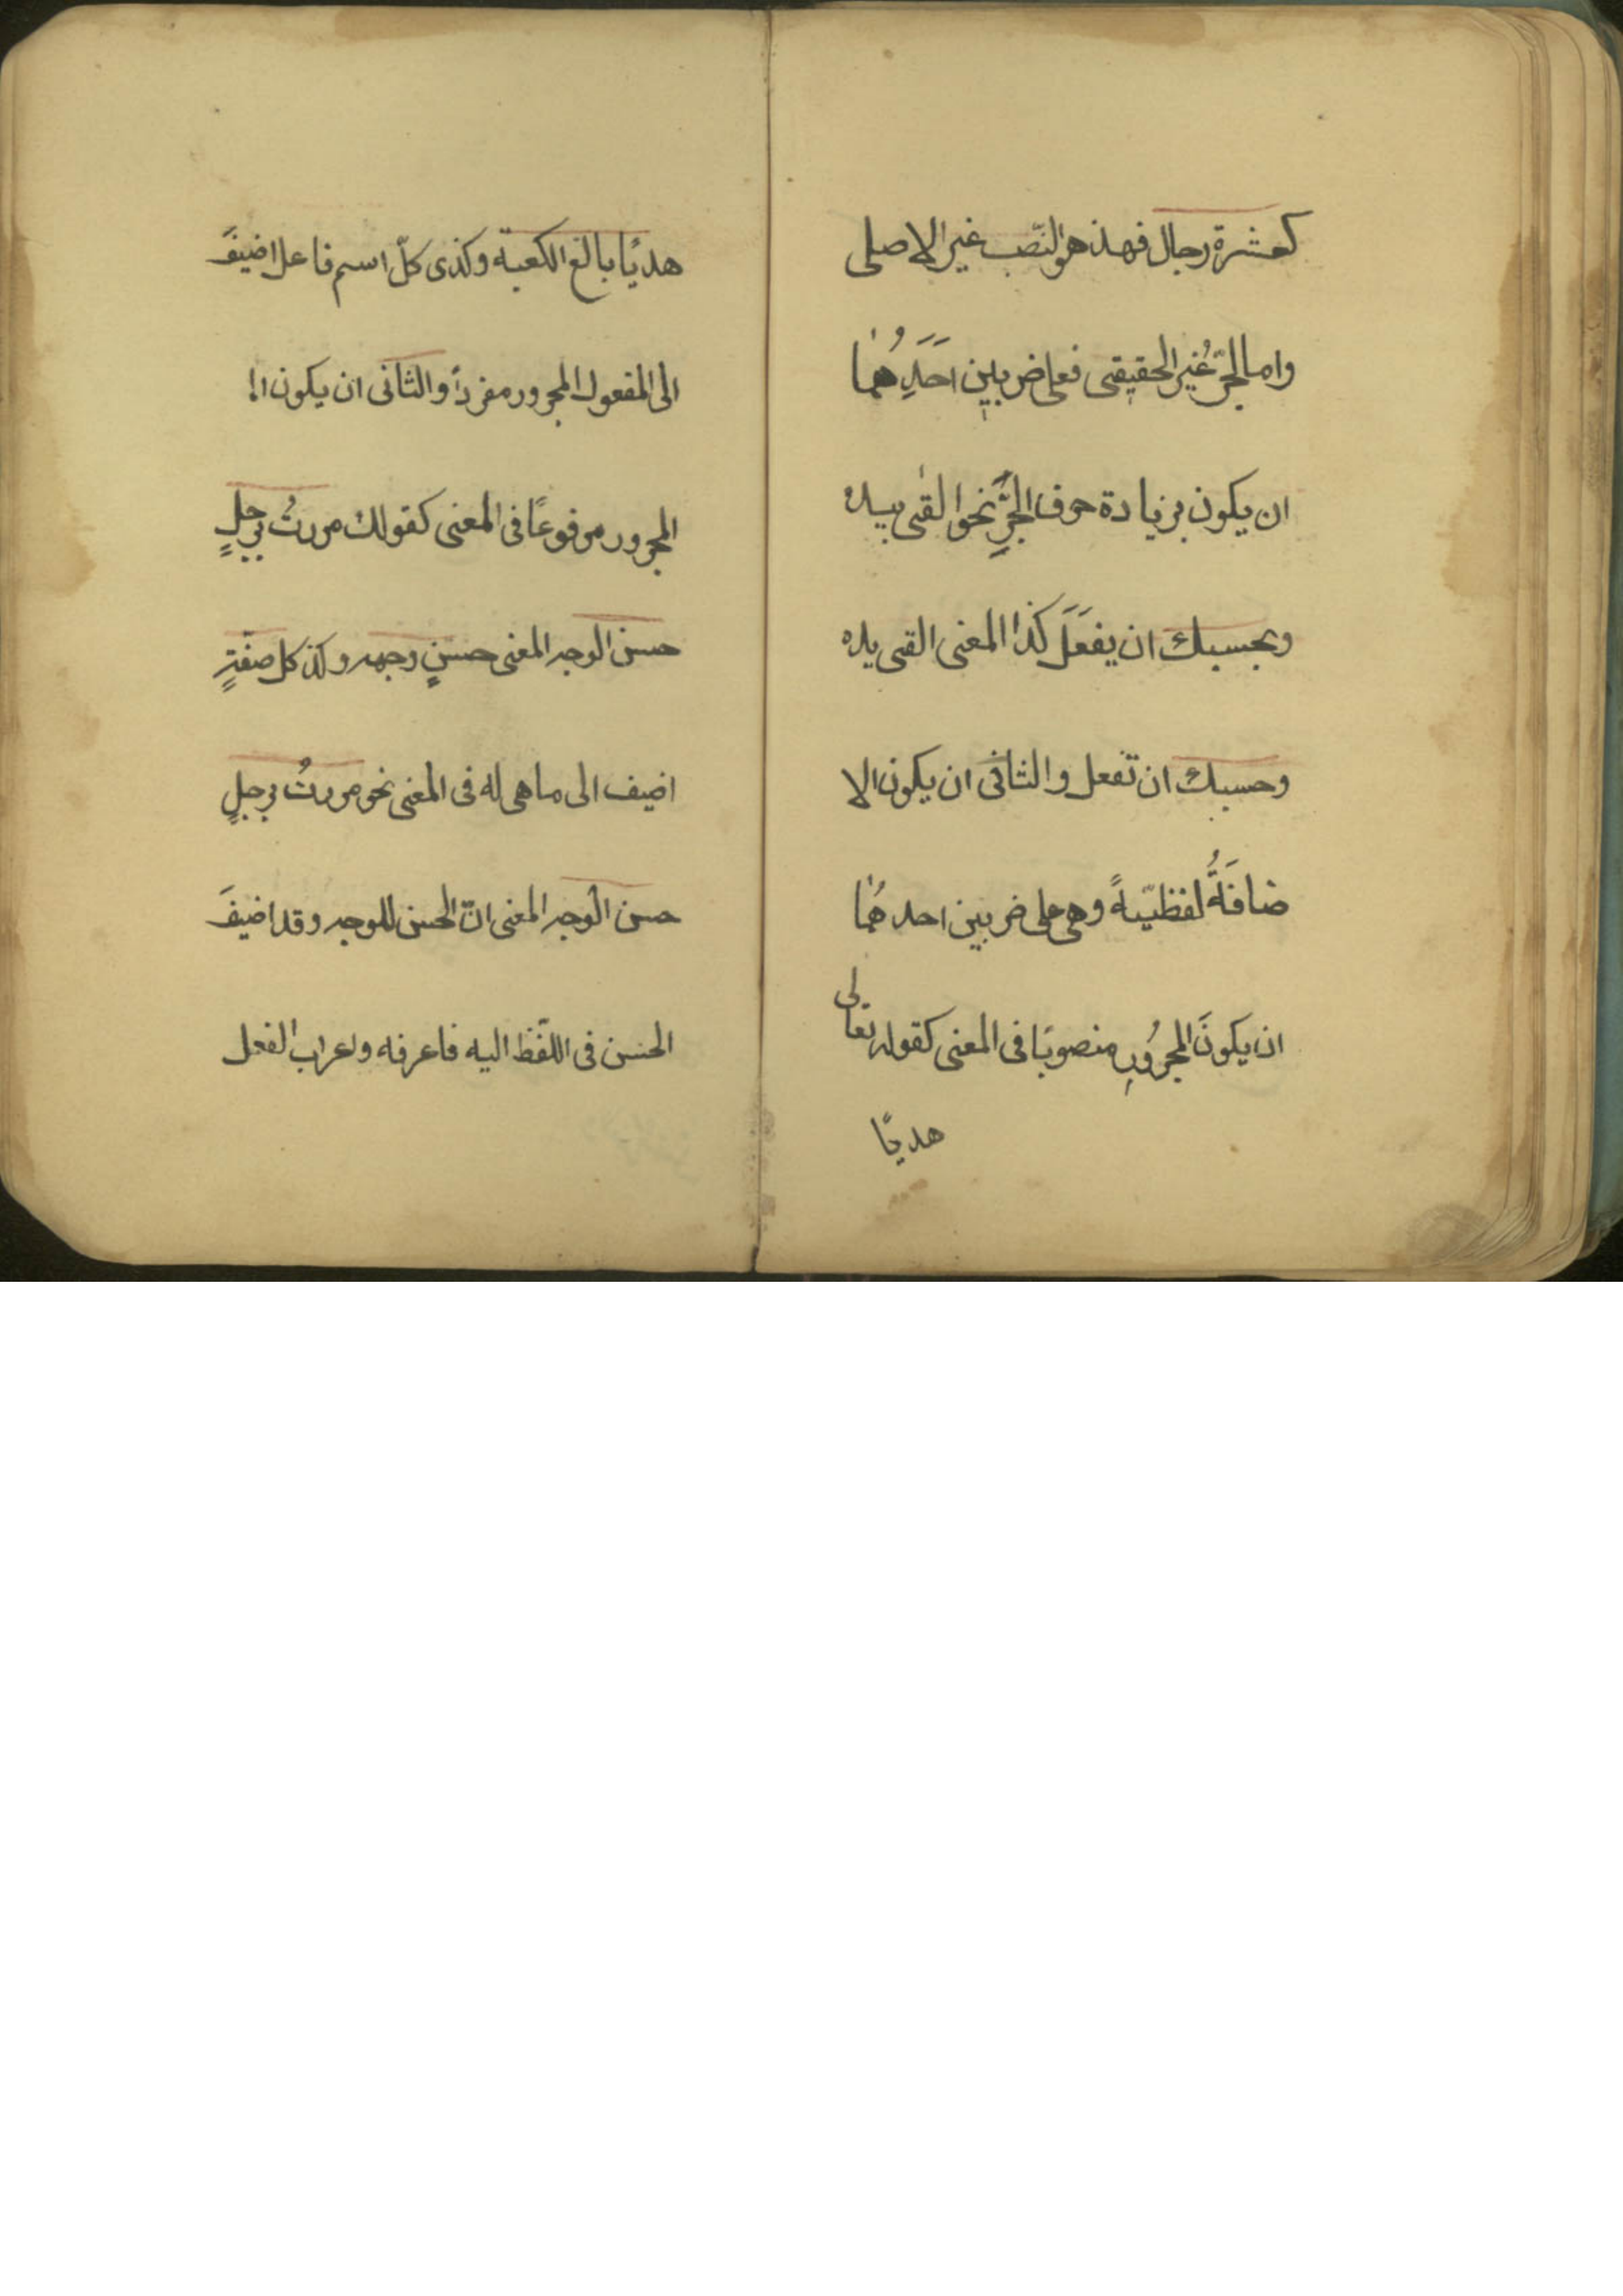 كعشرة رجال فهذ هو النّصب غير الاصلى
واما الجرّ غُير الحقيقى فعلى ضربين احَدِهُما
ان يكون بزيادة حرف الجرِّ نحو القى بيده
وبحسبك ان يفعَلَ كذا المعنى القى يده
وحسبك ان تفعل والثانى ان يكون الا
ضافَةُ لفظيّةً وهى على ضربين احدهُما
ان يكونَ المجرُورِ منصوبًا فى المعنى كقوله تعالى
هديًا
هديًا بالغ الكعبة وكذى كلّ اسم فاعل اضيفَ
الى المفعول المجرور مفردًا والثانى ان يكون ا
المجرور مرفوعًا فى المعنى كقولك مررتُ برجلٍ
حسن الوجه المعنى حسنٍ وجهه وكذ كل صفةٍ
اضيف الى ما هى له فى المعنى نحو مررتُ برجلٍ
حسن الوجه المعنى انّ الحسن للوجه وقد اضيفَ
الحسن فى اللّفظ اليه فاعرفه واعراب الفعل